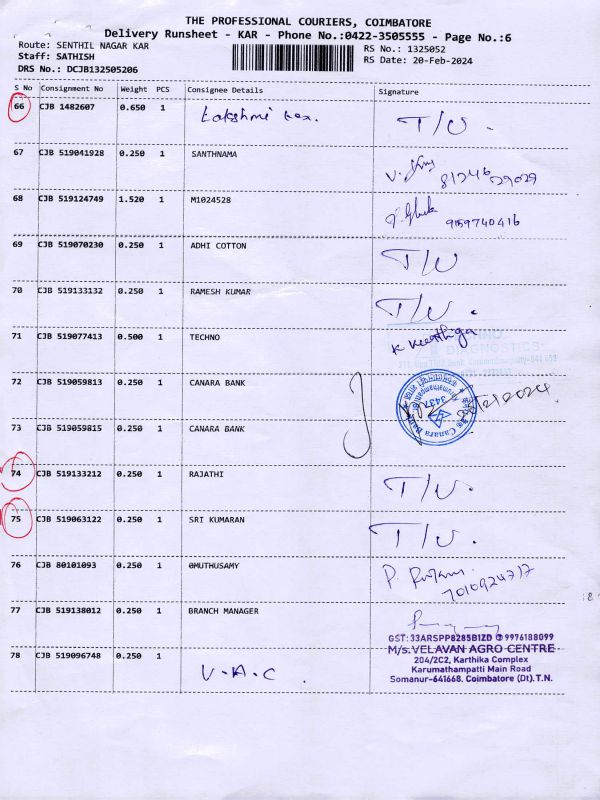 THE PROFESSIONAL COURIERS, COIMBATORE
Delivery Runsheet - KAR - Phone No.:0422-3505555 - Page No.:6
Route: SENTHIL NAGAR KAR
RS No.: 1325052
Staff: SATHISH
RS Date: 20-Feb-2024
DRS No.: DCJB132505206
S No Consignment No Weight PCS Consignee Details Signature
66 CJB 1482607 0.650 1 Lakshmi tex. T/U.
67 CJB 519041928 0.250 1 SANTHNAMA
81246 29029
68 CJB 519124749 1.520 1 M1024528
9159740416
69 CJB 519070230 0.250 1 ADHI COTTON T/U
70 CJB 519133132 0.250 1 RAMESH KUMAR T/U.
71 CJB 519077413 0.500 1 TECHNO K Keerthiga
DIAGNOSTICS
72 CJB 519059813 0.250 1 CANARA BANK
3437
73 CJB 519059815 0.250 1 CANARA BANK
Canara Bank
74 CJB 519133212 0.250 1 RAJATHI T/U.
75 CJB 519063122 0.250 1 SRI KUMARAN T/U.
76 CJB 80101093 0.250 1 0MUTHUSAMY
7010924717
77 CJB 519138012 0.250 1 BRANCH MANAGER
GST: 33ARSPP8285B1ZD ✆ 9976188099
M/s.VELAVAN AGRO CENTRE
78 CJB 519096748 0.250 1 V.A.C
204/2C2, Karthika Complex
Karumathampatti Main Road
Somanur-641668. Coimbatore (Dt).T.N.